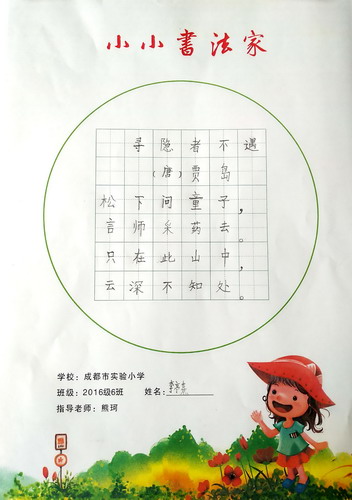 小小書法家
寻隐者不遇
（唐）贾岛
松下问童子，
言师采药去。
只在此山中，
云深不知处。
学校：成都市实验小学
班级：2016级6班 姓名：
指导老师：熊珂